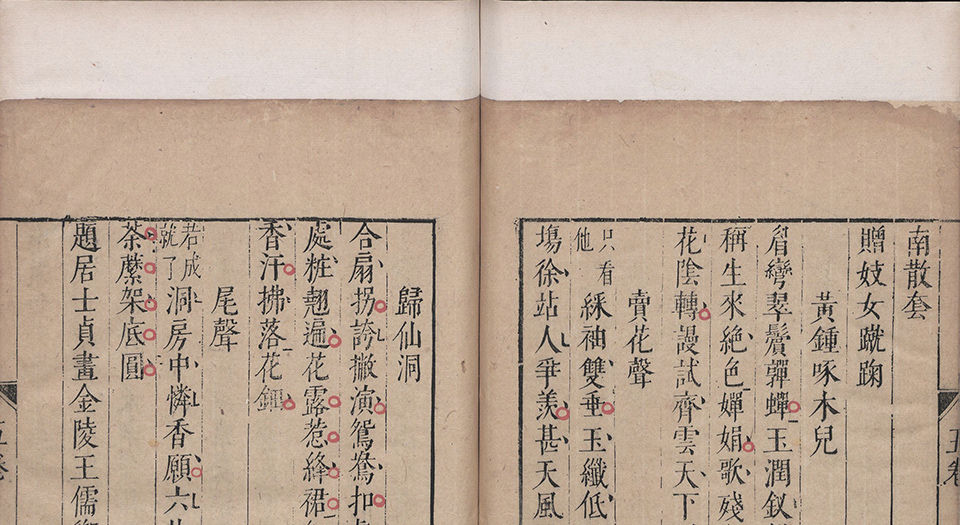 五卷
南散套
贈妓女蹴踘
黃鍾啄木兒
眉彎翠鬢軃蟬玉潤釵
稱生來絕色嬋娟歌殘
花陰轉謾試齊雲天下
賣花聲
只看他綵袖雙垂玉纖低
塲徐站人爭羨甚天風
歸仙洞
合扇拐誇撇演鴛鴦扣
處粧翹遍花露惹絳裙
香汗拂落花鈿
尾聲
若成就了洞房中憐香願六
荼蘼架底圓
題居士貞畫金陵王儒
五卷